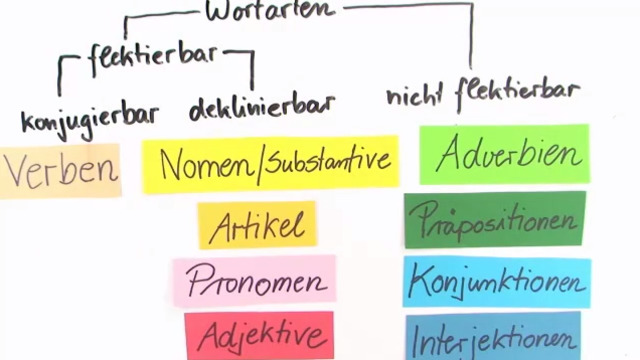 Wortarten
flektierbar
konjugierbar
deklinierbar
nicht flektierbar
Verben
Nomen/Substantive
Adverbien
Artikel
Präpositionen
Pronomen
Konjunktionen
Adjektive
Interjektionen